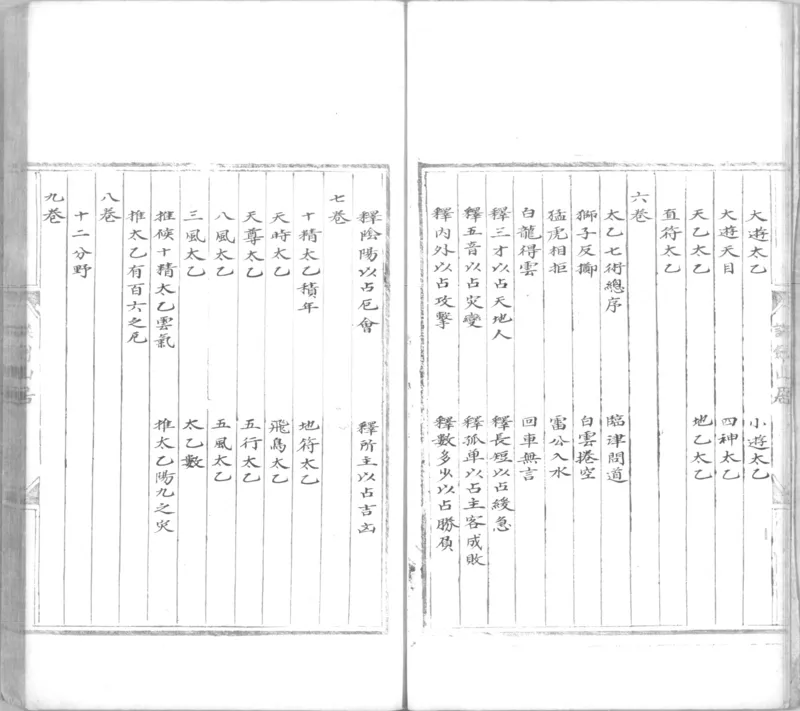 大遊太乙　小遊太乙
大遊天目　四神太乙
天乙太乙　地乙太乙
直符太乙
六卷
太乙七術總序　臨津問道
獅子反擲　白雲捲空
猛虎相拒　雷公入水
白龍得雲　回車無言
釋三才以占天地人　釋長短以占緩急
釋五音以占灾變　釋孤单以占主客成敗
釋内外以占攻擊　釋數多少以占勝負
釋陰陽以占厄會　釋所主以占吉凶
七卷
十精太乙積年　地符太乙
天時太乙　飛鳥太乙
天尊太乙　五行太乙
八風太乙　五風太乙
三風太乙　太乙數
推候十精太乙雲氣　推太乙陽九之灾
推太乙有百六之厄
八卷
十二分野
九卷